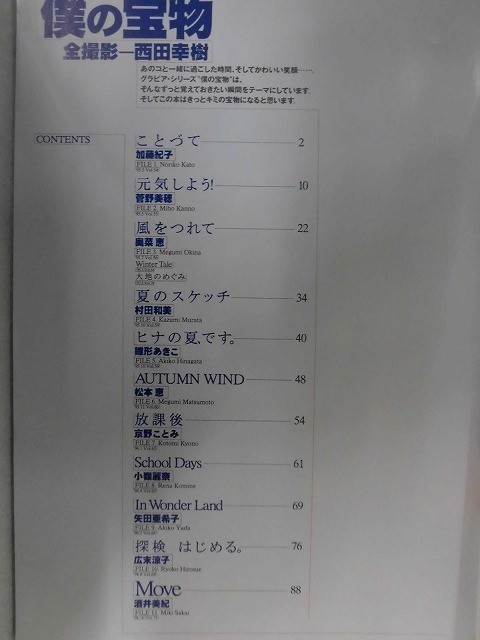 僕の宝物
全撮影—西田幸樹
あのコと一緒に過ごした時間、そしてかわいい笑顔……。
グラビア・シリーズ“僕の宝物”は、
そんなずっと覚えておきたい瞬間をテーマにしています。
そしてこの本はきっとキミの宝物になると思います。
CONTENTS
ことづて 2
加藤紀子
FILE 1. Noriko Kato
元気しよう! 10
菅野美穂
FILE 2. Miho Kanno
風をつれて 22
奥菜 恵
FILE 3. Megumi Okina
Winter Tale
大地のめぐみ
夏のスケッチ 34
村田和美
FILE 4. Kazumi Murata
ヒナの夏、です。 40
雛形あきこ
FILE 5. Akiko Hinagata
AUTUMN WIND 48
松本 恵
FILE 6. Megumi Matsumoto
放課後 54
京野ことみ
FILE 7. Kotomi Kyono
School Days 61
小嶺麗奈
FILE 8. Rena Komine
In Wonder Land 69
矢田亜希子
FILE 9. Akiko Yada
探検 はじめる。 76
広末涼子
FILE 10. Ryoko Hirosue
Move 88
酒井美紀
FILE 11. Miki Sakai